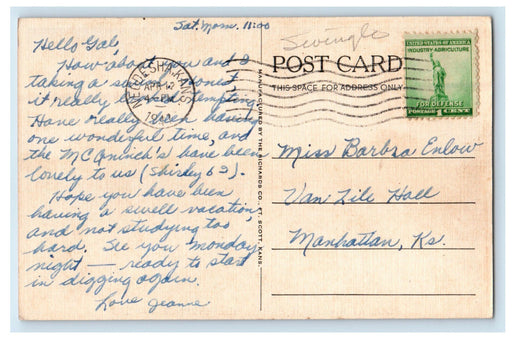 Sat. Morn. 11:00
Hello Gal,
How about you and I
taking a swim? Honest
it really looks tempting.
Have really been having
one wonderful time, and
the McCaninch's have been
lonely to us (Shirley 63).
Hope you have been
having a swell vacation
and not studying too
hard. See you Monday
night — ready to start
in digging again.
Love Jeanne
Swingle
NEODESHA, KANS.
APR 12
POST CARD
THIS SPACE FOR ADDRESS ONLY
UNITED STATES OF AMERICA
INDUSTRY-AGRICULTURE
FOR DEFENSE
POSTAGE 1 CENT
MANUFACTURED BY THE RICHARDS CO., FT. SCOTT, KANS.
Miss Barbra Enlow
Van Zile Hall
Manhattan, Ks.